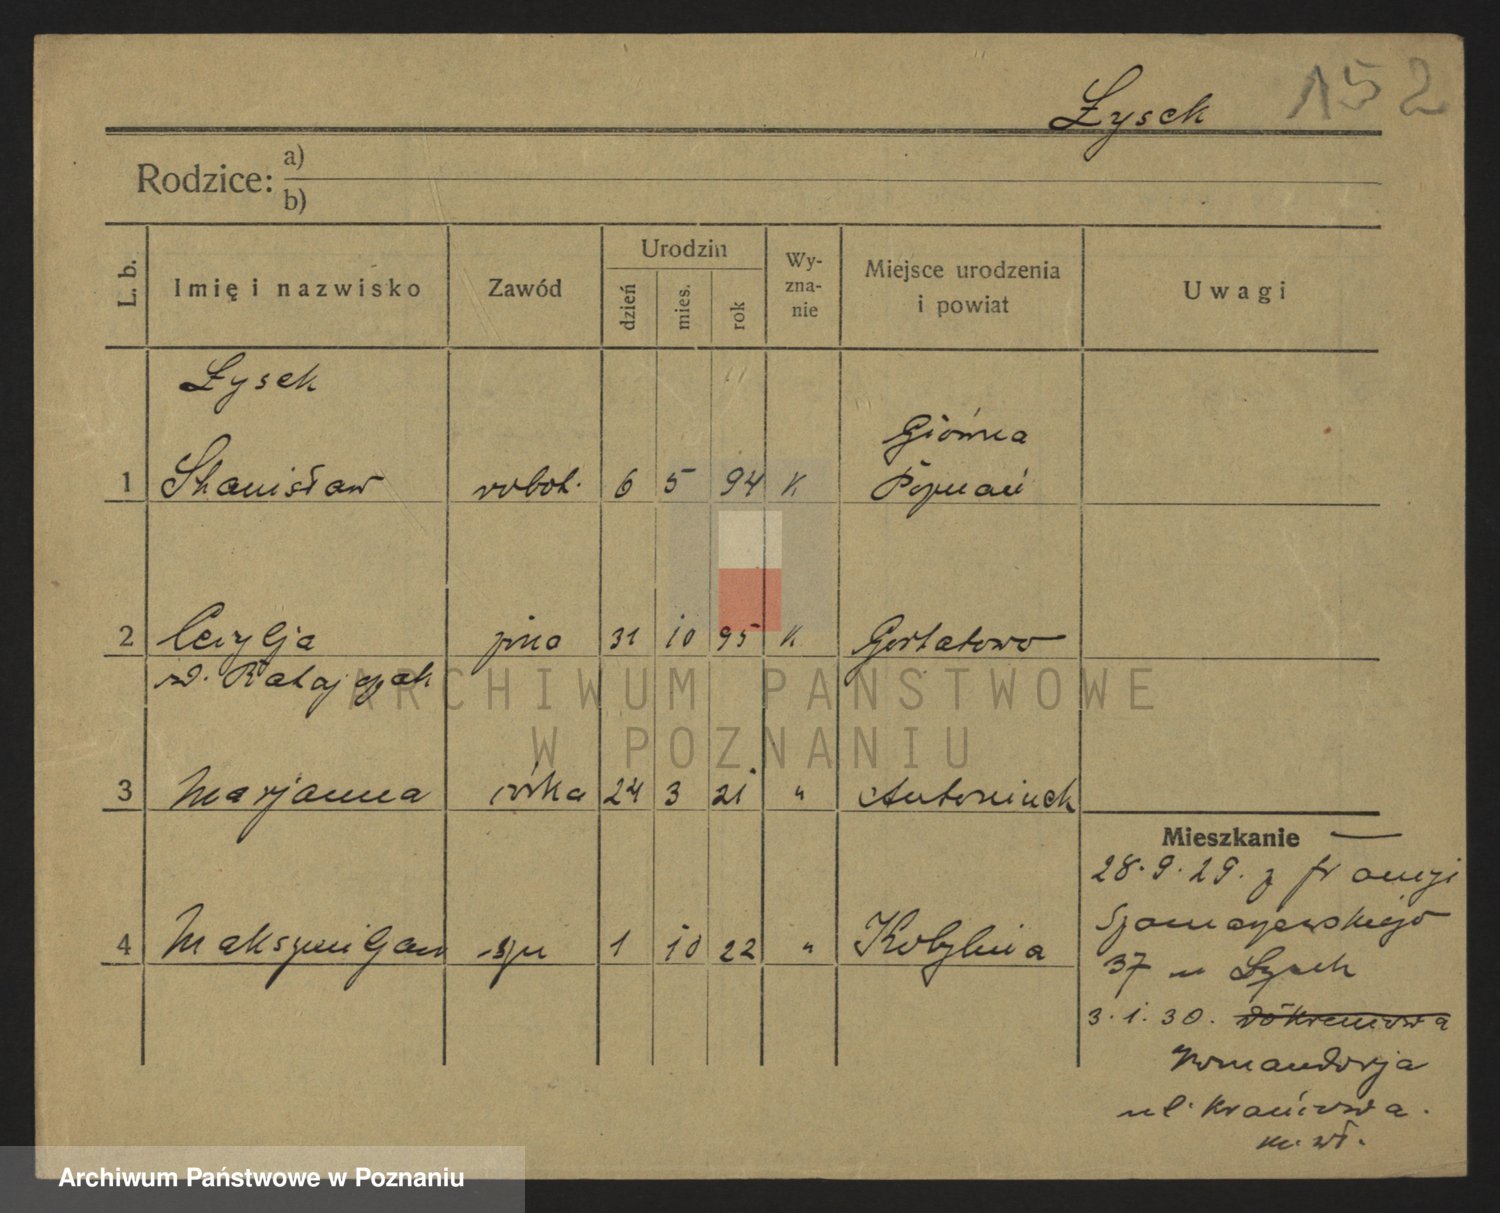 Łysek 152
Rodzice: a)
b)
L. b. Imię i nazwisko Zawód Urodzin dzień mies. rok Wy-zna-nie Miejsce urodzenia i powiat Uwagi
Łysek
Główna
1 Stanisław robot. 6 5 94 K Poznań
2 Cecylja żona 31 10 95 K Gortatowo
rd. Ratajczak
ARCHIWUM PAŃSTWOWE
W POZNANIU
3 Marjanna córka 24 3 21 " Antoninek
Mieszkanie
28.9.29. z
4 Maksymiljan syn 1 10 22 " Kobylnia
Szamarzewskiego
37 u Łysek
3.1.30.
Komandorja
ul. Krańcowa.
m. wł.
Archiwum Państwowe w Poznaniu